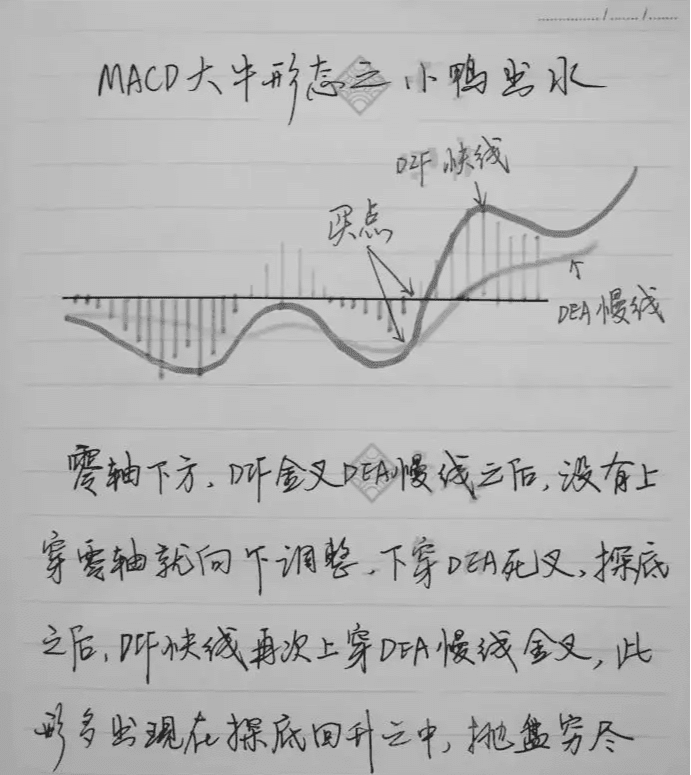 MACD大牛形态之小鸭出水
DIF快线
买点
DEA慢线
零轴下方，DIF金叉DEA慢线之后，没有上
穿零轴就向下调整，下穿DEA死叉，探底
之后，DIF快线再次上穿DEA慢线金叉，此
形多出现在探底回升之中，抛盘穷尽